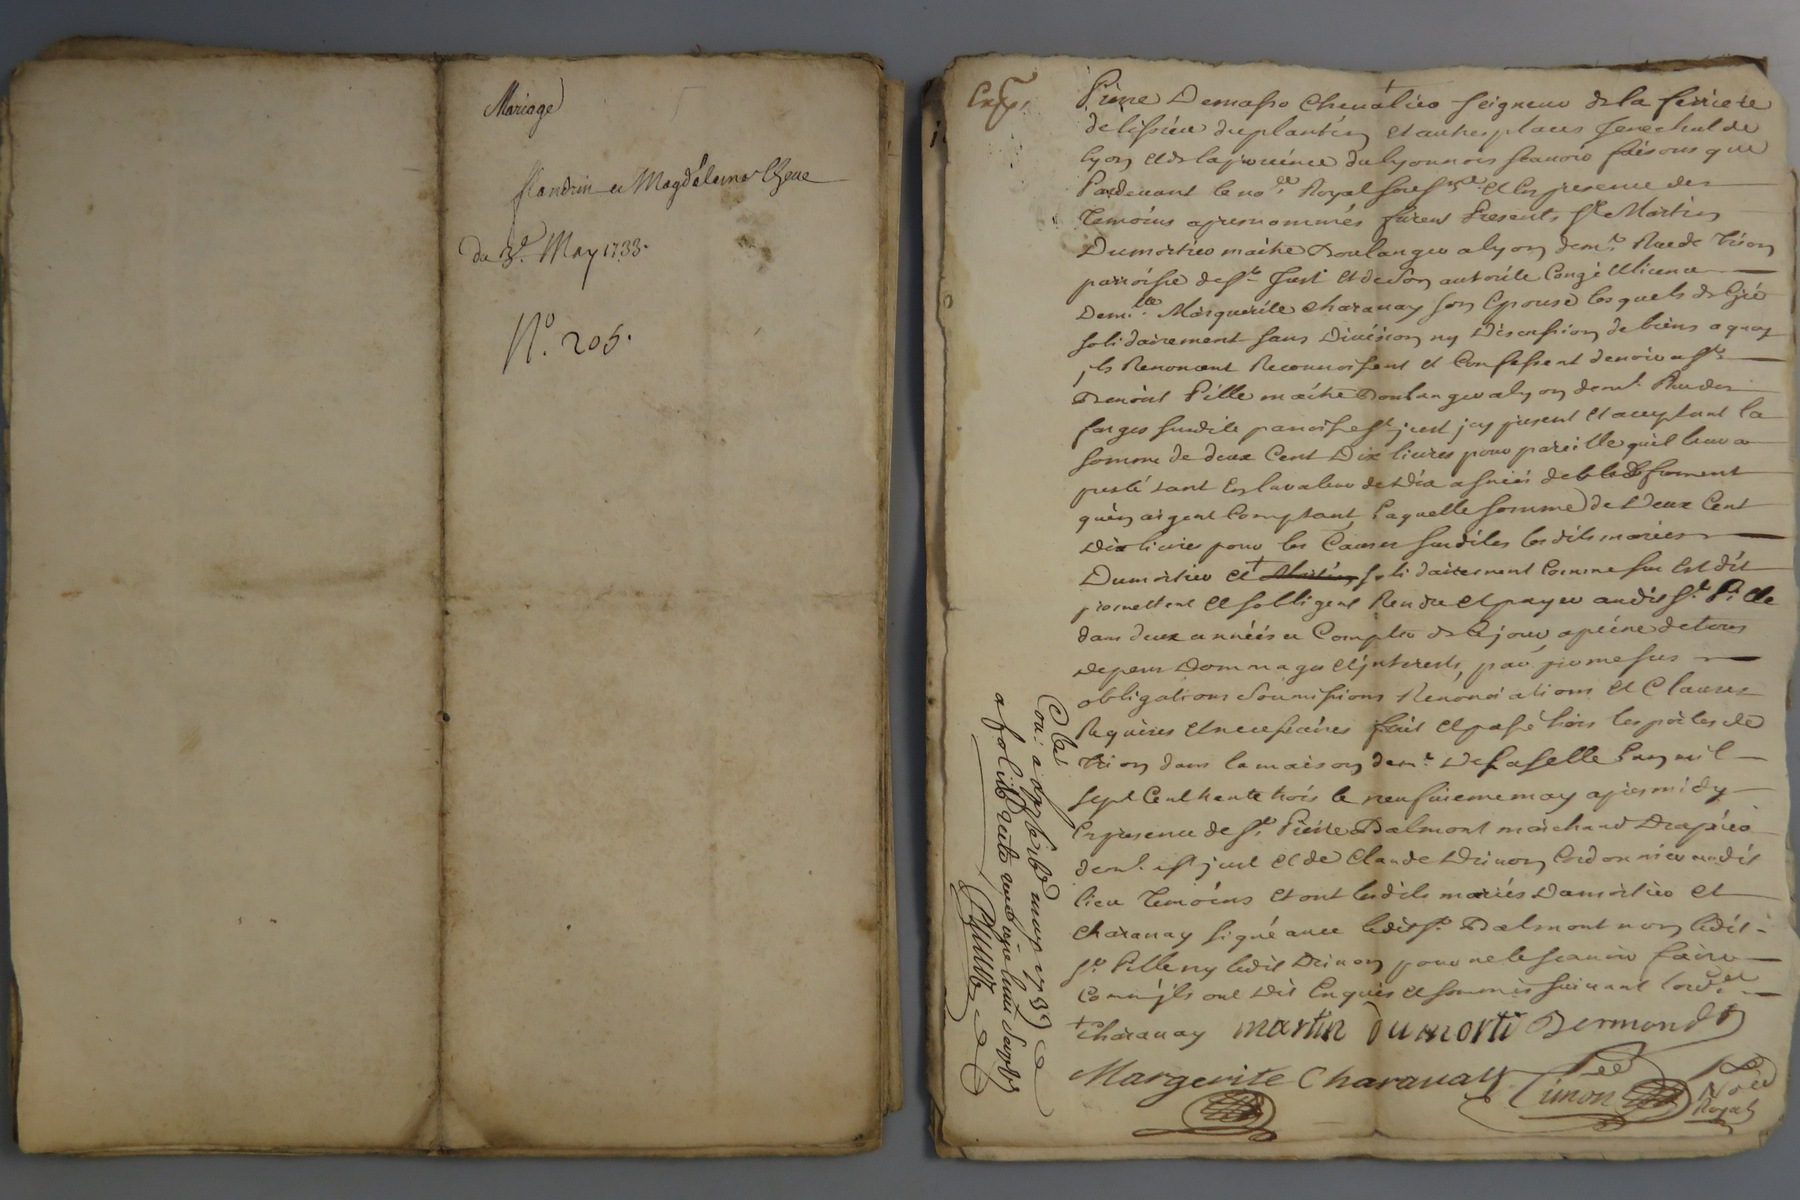 Mariage
flandrin et Magdeleine Chene
du 3e. May 1733.
N°. 205.
Exp.
Pierre Demasso Chevalier Seigneur de la ferriere
de lissieu du plantin et autres places Senechal de
lyon et de la province du lyonnois scavoir faisons que
Pardevant le nore. Royal sousne. et En presence des
temoins apres nommés furent Presents Sr. Martin
Dumortier maitre Boulanger a lyon demt. Rue de Trion
parroisse de St. Just et de Son autorité Congé et licence
Demlle. Marguerite Charanay son Epouse lesquels de Gré
solidairement sans Division ny Discussion de biens a quoy
ils Renoncent Reconnoissent et Confessent devoir a Sr.
Benoist Pille maitre Boulanger a lyon demt. Rue des
farges susdite parroisse St. just icy present et acceptant la
somme de deux Cent Dix livres pour pareille qu'il leur a
presté tant En la valeur de Dix asnées de bled froment
qu'en argent Comptant laquelle somme de Deux Cent
Dix livres pour les Causes susdites lesdits mariés
Dumortier et + Martin solidairement Comme sus Est dit
promettent et s'obligent Rendre et payer audit Sr. Pille
dans deux années a Compter de Ce jour a peine de tous
depens Dommages et interests, par promesses
obligations Soumissions Renonciations et Clauses
Requises et necessaires fait et passé hors les portes de
Trion dans la maison de mr. Delaselle L'an mil
sept Cent trente trois le neufvieme may apres midy
En presence de Sr. Pierre Balmont marchand Drapier
demt. a St just et de Claude Drinon Cordonnier audit
lieu temoins et ont lesdits mariés Dumortier et
Charanay signé avec ledit Sr. Balmont non ledit
Sr. Pille ny ledit Drinon pour ne le scavoir faire
Comm'ils ont Dit Enquis et sommés suivant l'ord.
+ Charanay martin dumorti Bermond
Margerite Charanay Simon Nore Royal
Clé
Con: a lyon le may 1733